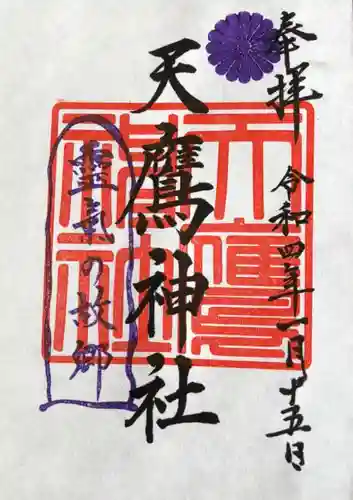 奉拝
令和四年一月十五日
天鷹神社
霊気の故郷
天鷹神社